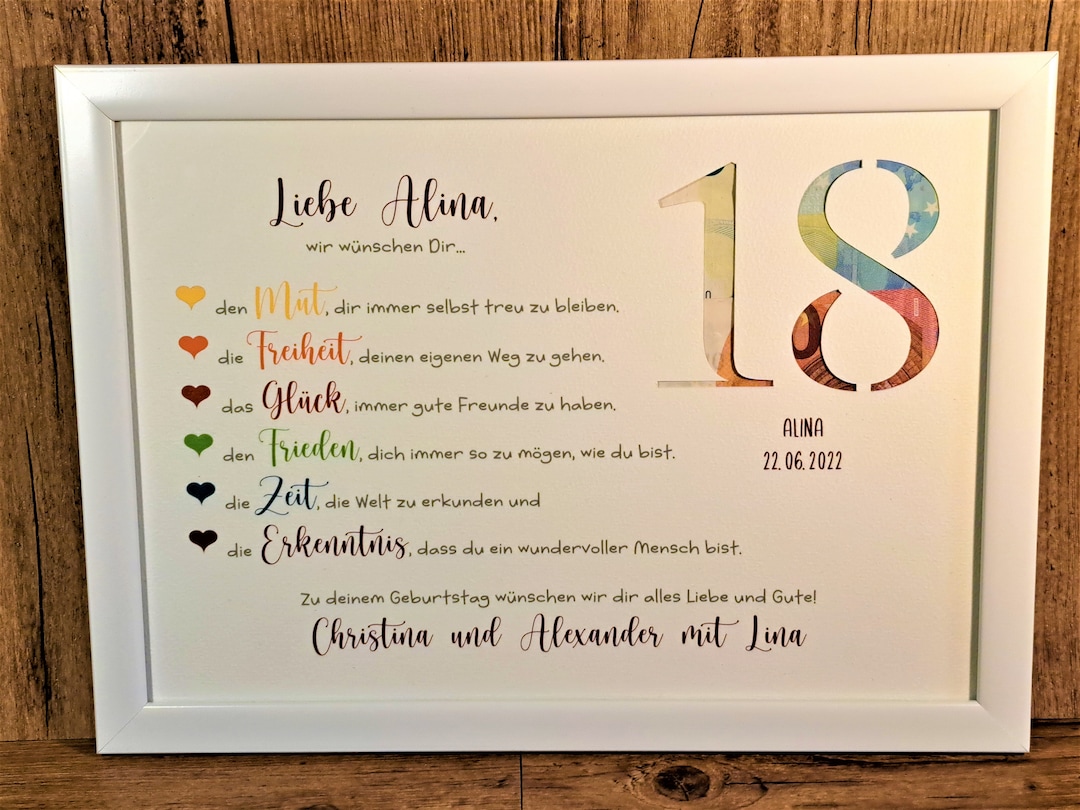 Liebe Alina,
wir wünschen Dir...
den Mut, dir immer selbst treu zu bleiben.
die Freiheit, deinen eigenen Weg zu gehen.
das Glück, immer gute Freunde zu haben.
den Frieden, dich immer so zu mögen, wie du bist.
die Zeit, die Welt zu erkunden und
die Erkenntnis, dass du ein wundervoller Mensch bist.
Zu deinem Geburtstag wünschen wir dir alles Liebe und Gute!
Christina und Alexander mit Lina
18
ALINA
22.06.2022